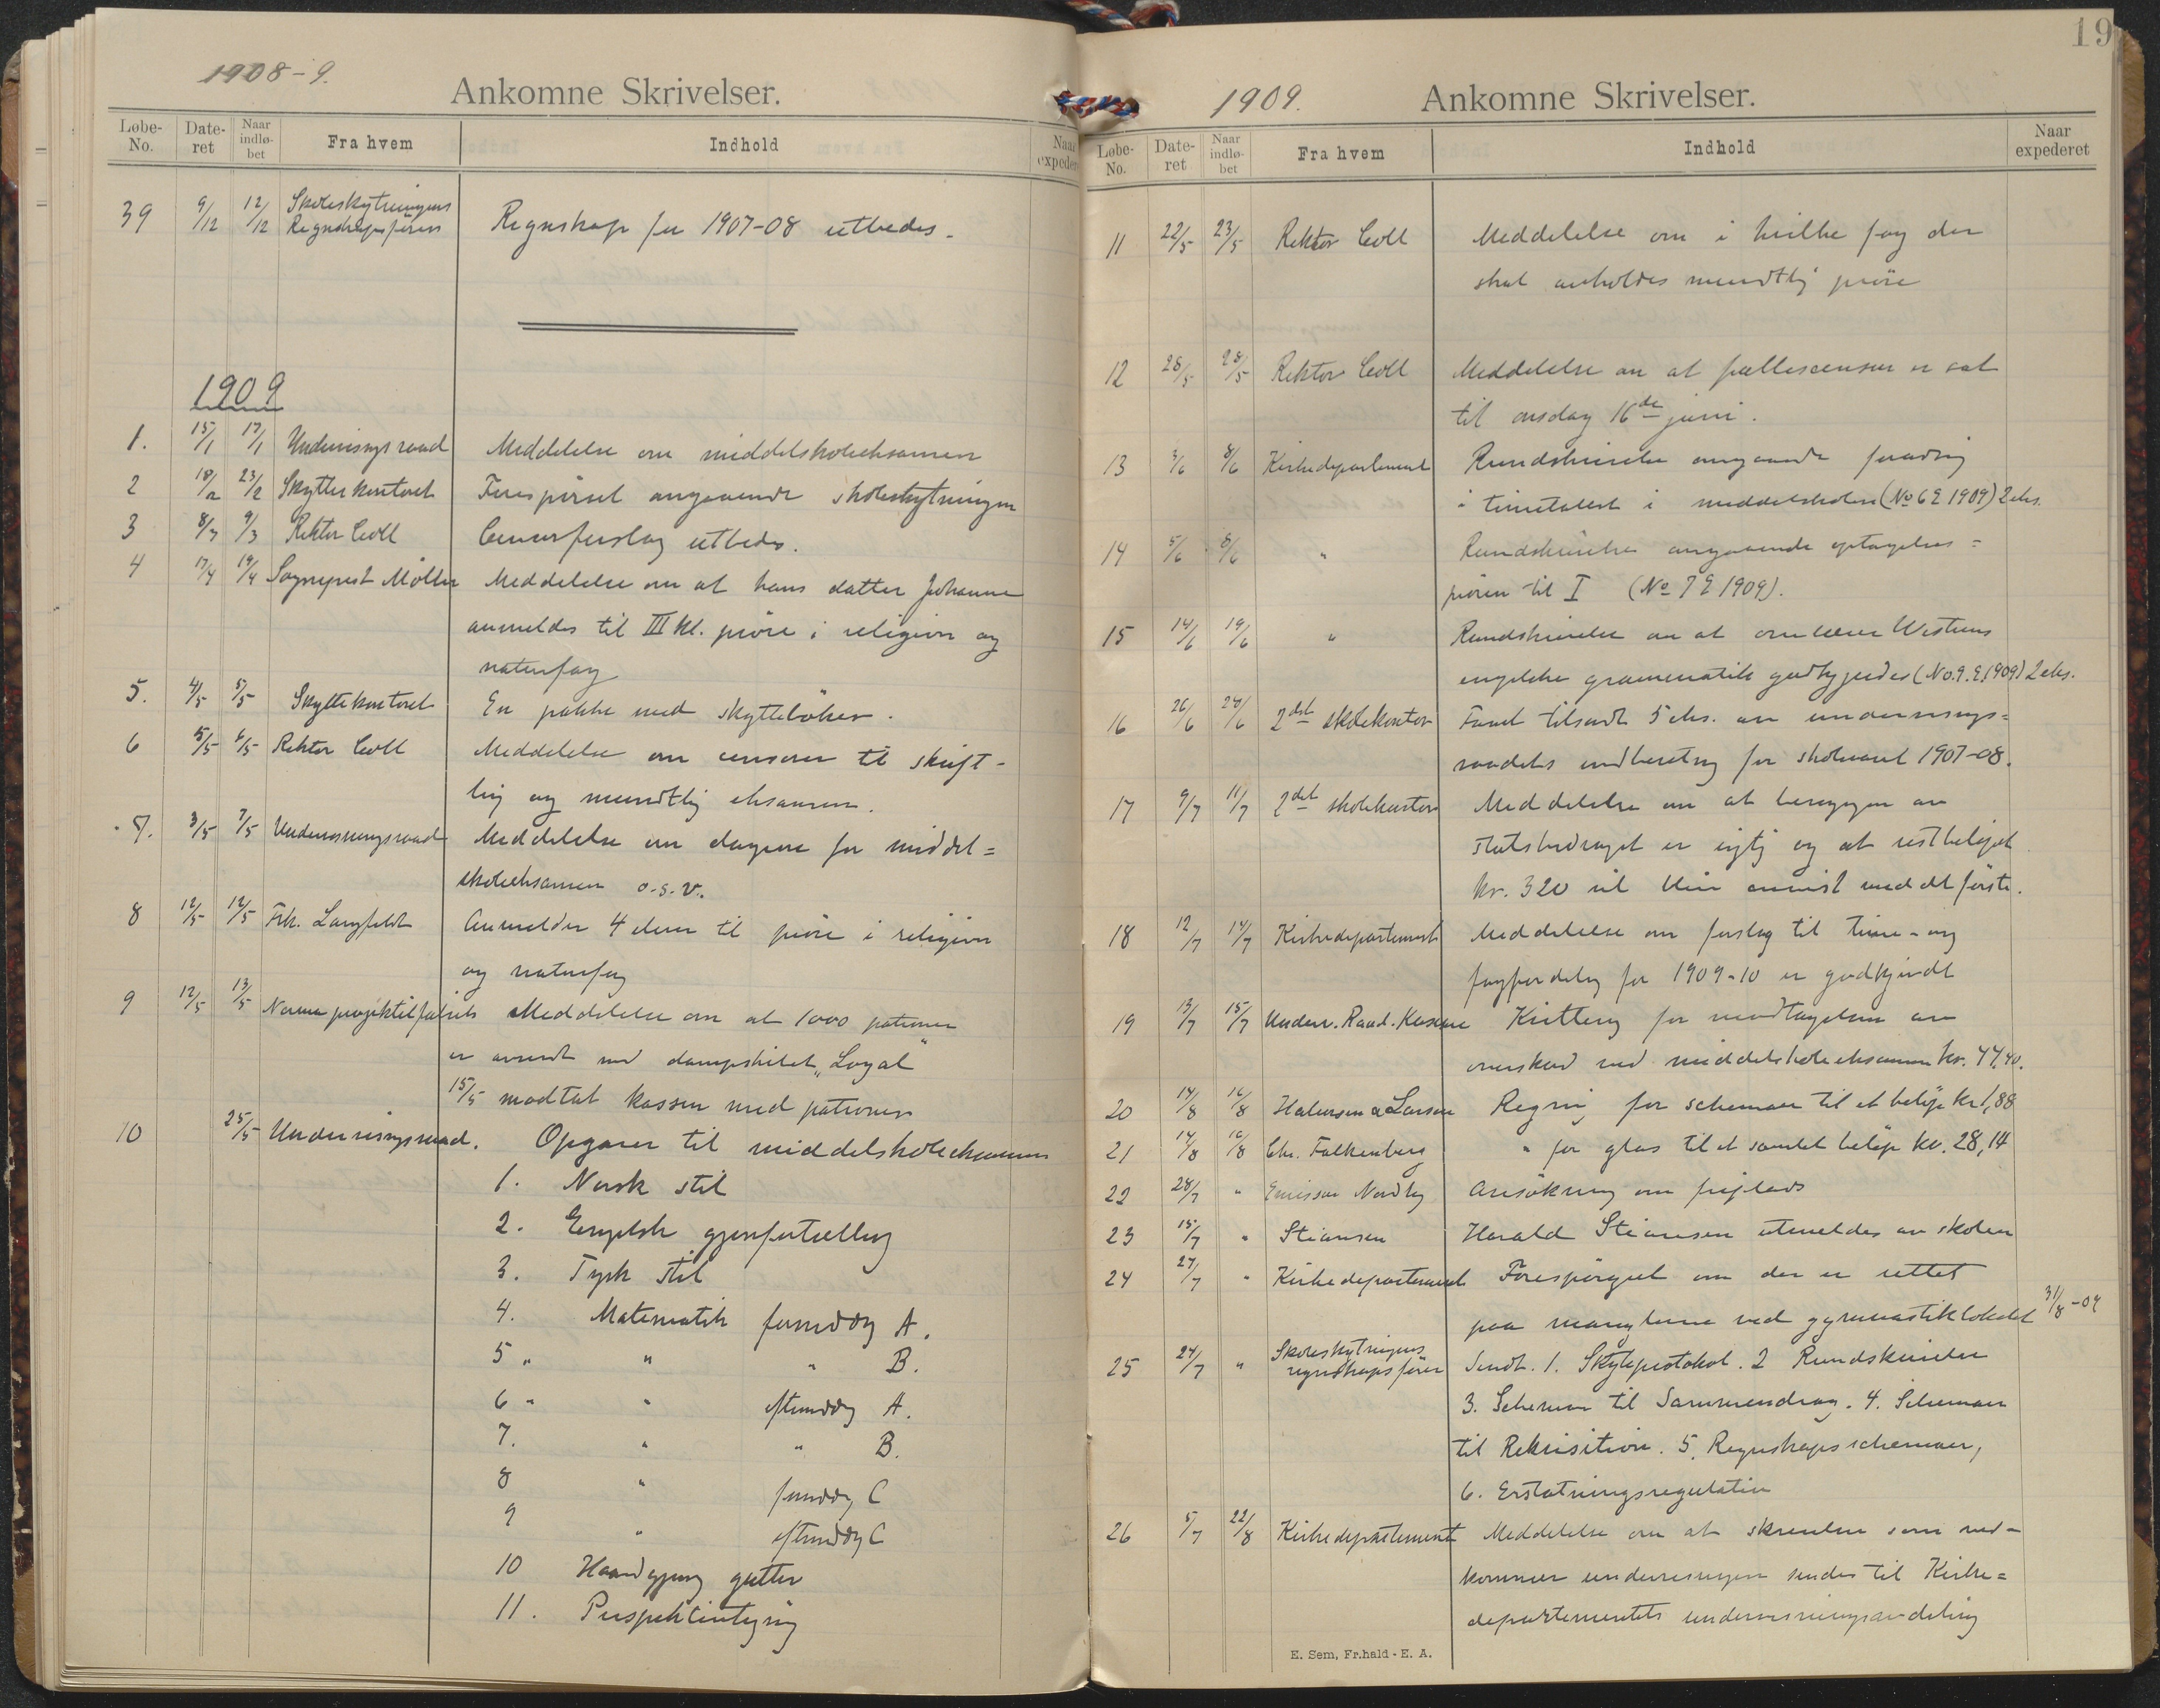 1908-9.
Ankomne Skrivelser.
Løbe-No. Dateret Naar indløbet Fra hvem Indhold Naar expeder
39 9/12 12/12 Skoleskytningens Regnskapsfører Regnskap for 1907-08 utbedes.
1909
1. 15/1 17/1 Undervisngsraad Meddelelse om middelskoleeksamen
2 18/2 23/2 Skytterkontoret Forespørsel angaaende skoleskytningen
3 8/3 9/3 Rektor Coll Censorforslag utbedes.
4 17/4 19/4 Sogneprest Möller Meddelelse om at hans datter Johanne
anmeldes til III kl. prøve i religion og
naturfag
5. 4/5 5/5 Skyttekontoret En pakke med skyttebøker.
6 5/5 6/5 Rektor Coll Meddelelse om censorer til skrift-
lig og mundtlig eksamen.
7. 3/5 7/5 Undervisningsraad Meddelelse om dagene for middel=
skoleeksamen o.s.v.
8 12/5 12/5 Frk. Langfeldt Anmelder 4 elever til prøve i religion
og naturfag
9 12/5 13/5 Norma projektilfabrik Meddelelse om at 1000 patroner
er avsendt med dampskibet „Loyal"
15/5 modtat kassen med patroner
10 25/5 Undervisngsraad. Opgaver til middelskoleeksamen
1. Norsk stil
2. Engelsk gjenfortælling
3. Tysk stil
4. Matematik formiddag A.
5 " " " B.
6 " " eftermiddag A.
7. " " B.
8 " formiddag C
9 " eftermiddag C
10 Haandgjerning gutter
11. Perspektivtegning
19
1909.
Ankomne Skrivelser.
Løbe-No. Dateret Naar indløbet Fra hvem Indhold Naar expederet
11 22/5 23/5 Rektor Coll Meddelelse om i hvilke fag der
skal avholdes mundtlig prøve
12 28/5 28/5 Rektor Coll Meddelelse om at fællescensur er sat
til onsdag 16de juni.
13 3/6 8/6 Kirkedepartement Rundskrivelse angaaende forandring
i timetallet i middelskolen (No 6 E 1909) 2 eks.
14 5/6 8/6 " Rundskrivelse angaaende optagelses=
prøven til I (No 7 E 1909).
15 14/6 19/6 " Rundskrivelse om at overlærer Westerns
engelske grammatik godkjendes (No. 9. E. 1909) 2 eks.
16 26/6 28/6 2det skolekontor Faaet tilsendt 5 eks. av undervisnings=
raadets indberetning for skoleaaret 1907-08.
17 9/7 11/7 2det skolekontor Meddelelse om at beregningen av
statsbidraget er rigtig og at restbeløpet
kr. 320 vil bli anvist med det første.
18 12/7 14/7 Kirkedepartement Meddelelse om forslag til time- og
fagfordeling for 1909-10 er godkjendt
19 13/7 15/7 Underv. Raad. Kasserer Kvittering for modtagelsen av
overskud ved middelskoleeksamen kr. 44,40.
20 14/8 16/8 Halvorsen & Larsen Regning for schemaer til et beløp kr 1,88
21 14/8 16/8 Chr. Falkenberg " for glas til et samlet beløp kr. 28,14
22 28/7 " Nordby Ansøkning om friplads
23 15/7 " Stiansen Harald Stiansen utmeldes av skolen
24 27/7 " Kirkedepartement Forespørgsel om der er rettet
paa manglerne ved gymnastiklokalet 31/8-09
25 24/7 " Skoleskytningens regnskapsfører Sendt. 1. Skyteprotokol. 2 Rundskrivelse
3. Schema til Sammendrag. 4. Schemaer
til Rekvisition. 5. Regnskapsschemaer,
6. Erstatningsregulativ
26 5/7 22/8 Kirkedepartement Meddelelse om at skrivelser som ved-
kommer undervisningen sendes til Kirke=
departementets undervisningsavdeling
E. Sem, Fr.hald - E. A.